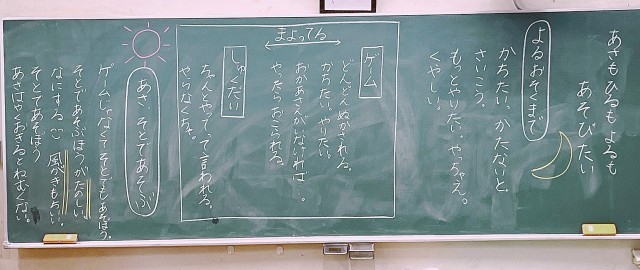 あさもひるもよるも
あそびたい
よるおそくまで
かちたい。かたないと。
さいこう。
もっとやりたい。やっちゃえ。
くやしい。
まよってる
ゲーム
どんどんぬかされる。
かちたい。やりたい。
おかあさんがいなければ…。
やったらおこられる。
しゅくだい
ちゃんとやってって言われる。
やらなくちゃ。
あさ、そとであそぶ
ゲームじゃなくてそとでもあそぼう。
そとであそぶほうがたのしい。
なにする 風がきもちいい。
そとであそぼう
あさはやくおきるとねむくない。